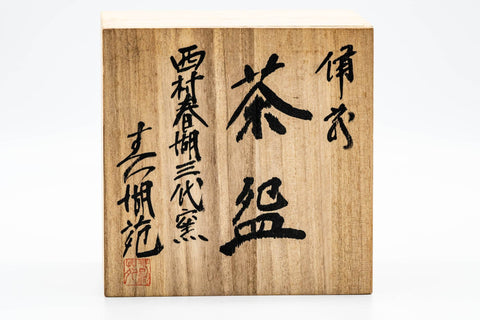 備前
茶盌
西村春湖三代窯
春湖苑